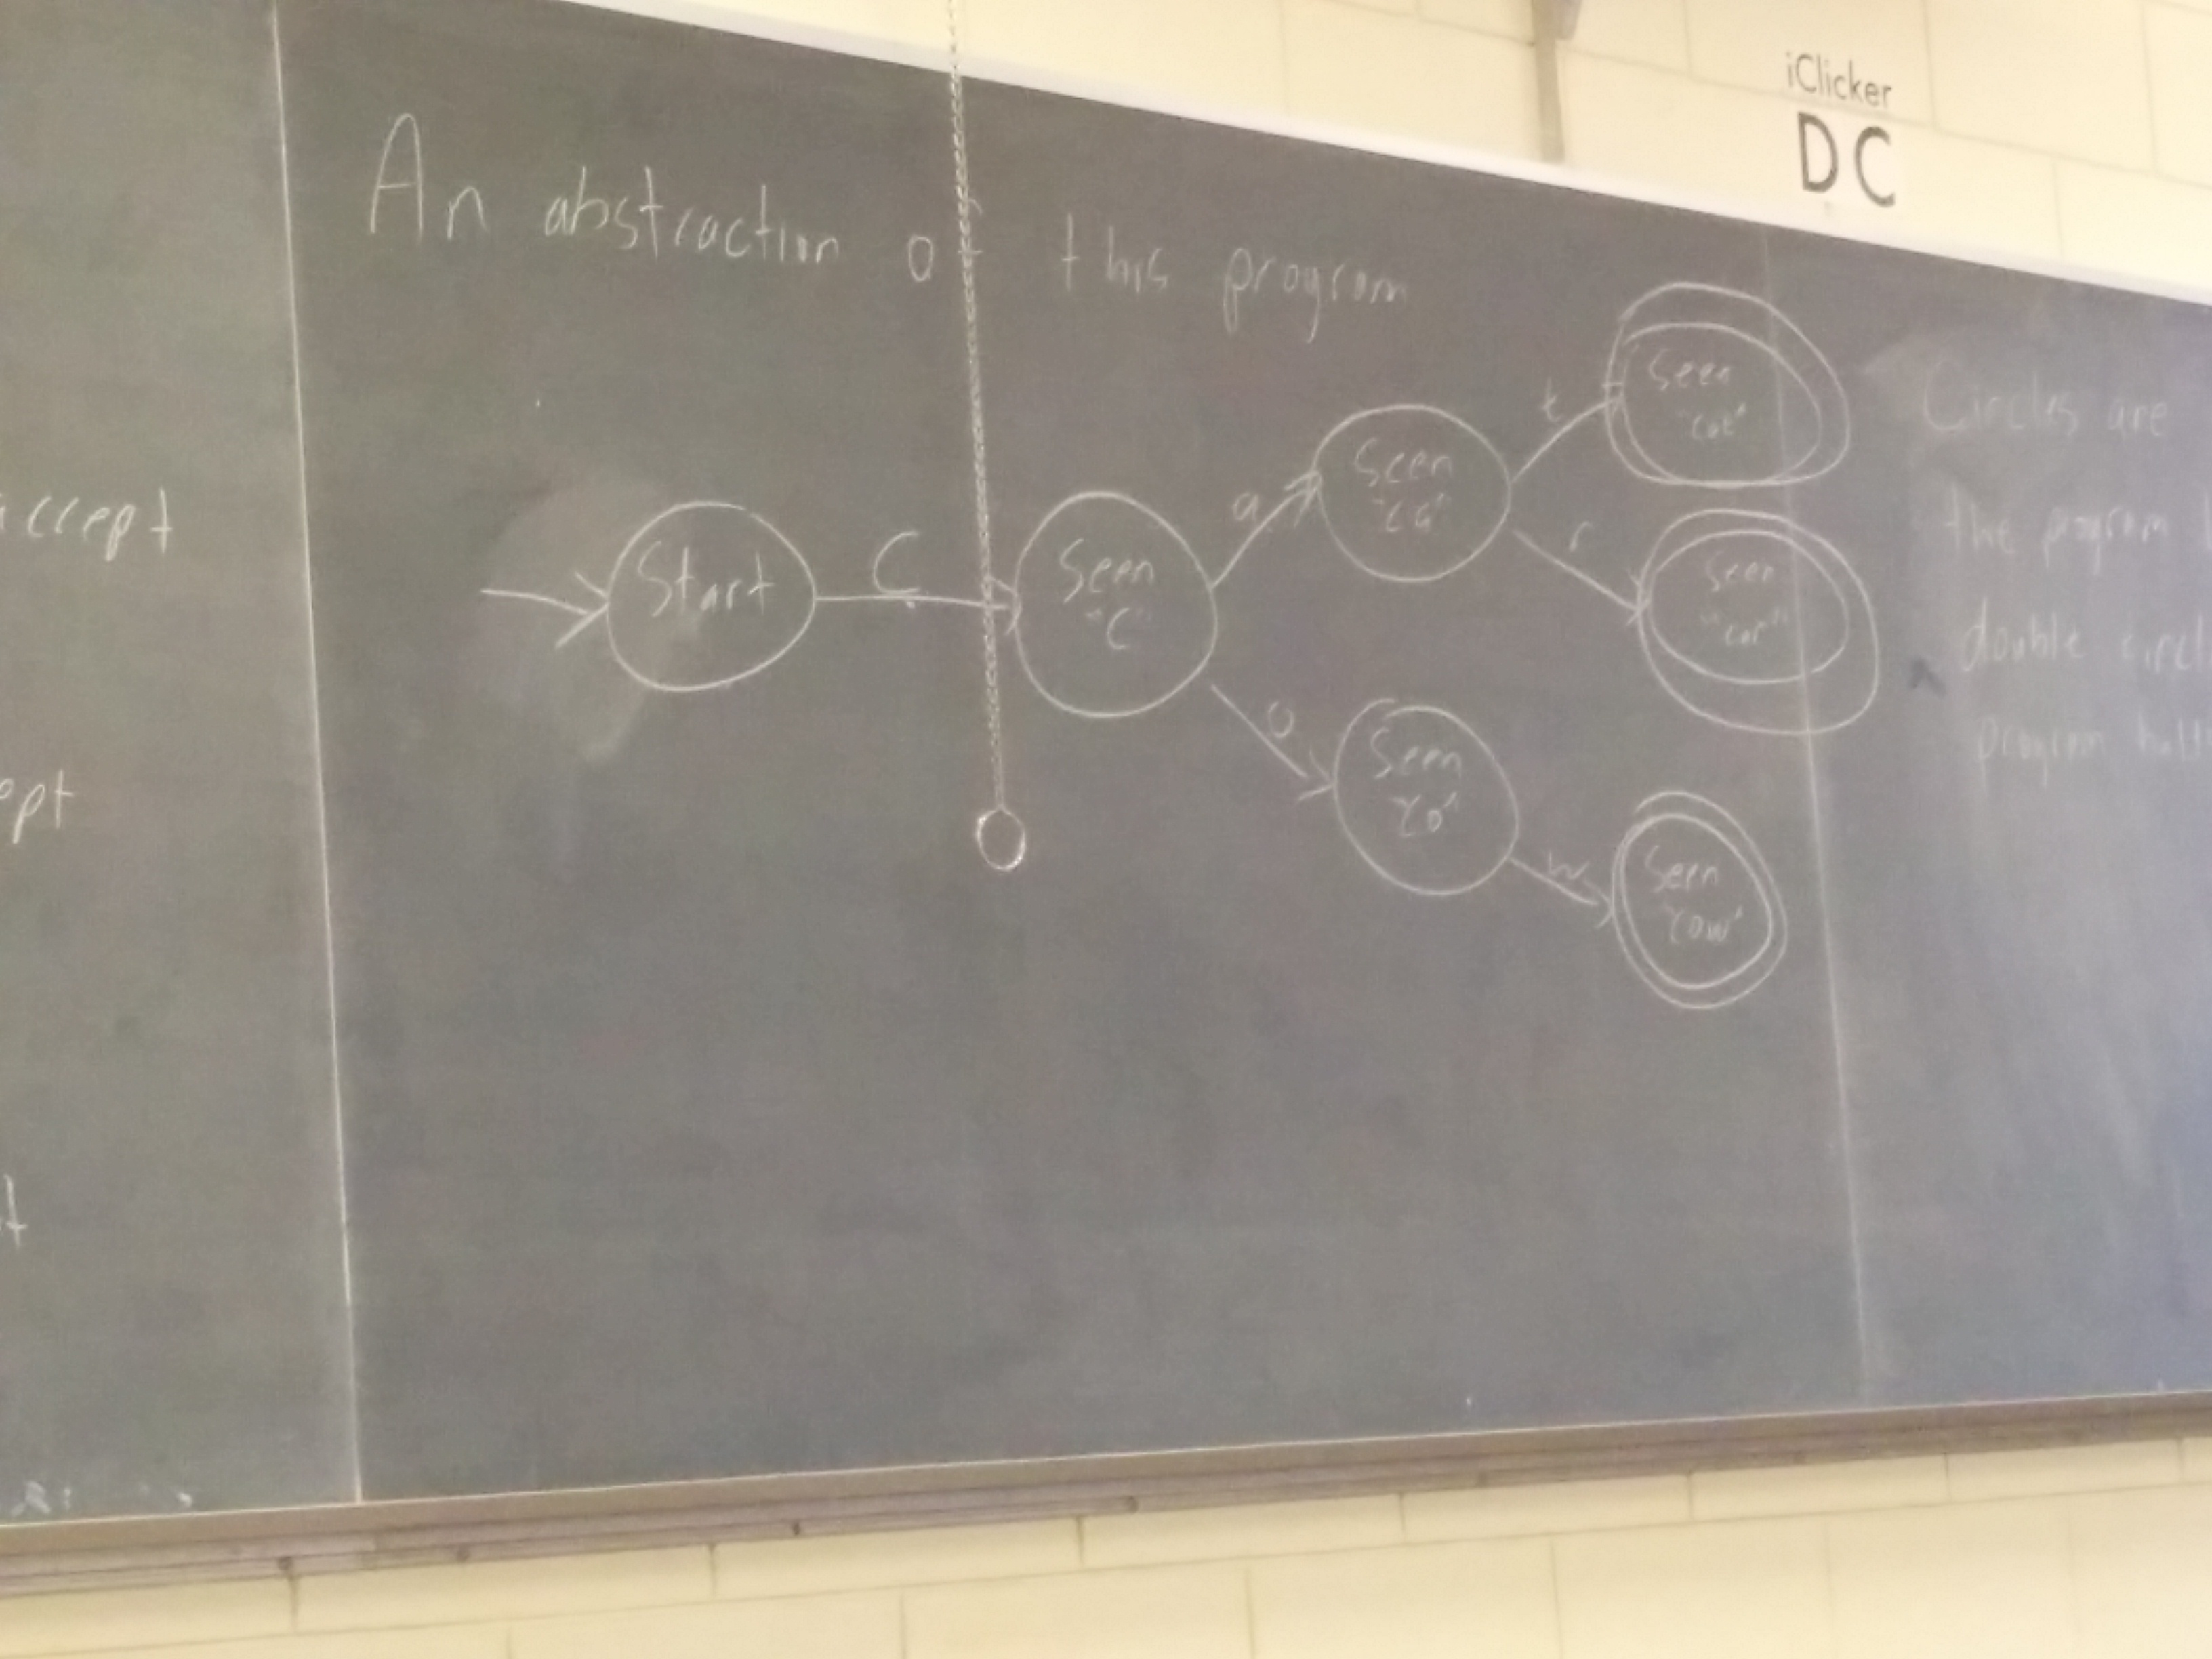 iClicker
DC
An abstraction of this program
accept
Start
C
Seen
"C"
a
Seen
"ca"
t
Seen
"cat"
r
Seen
"car"
o
Seen
"co"
w
Seen
"cow"
Circles are
the program
double
program